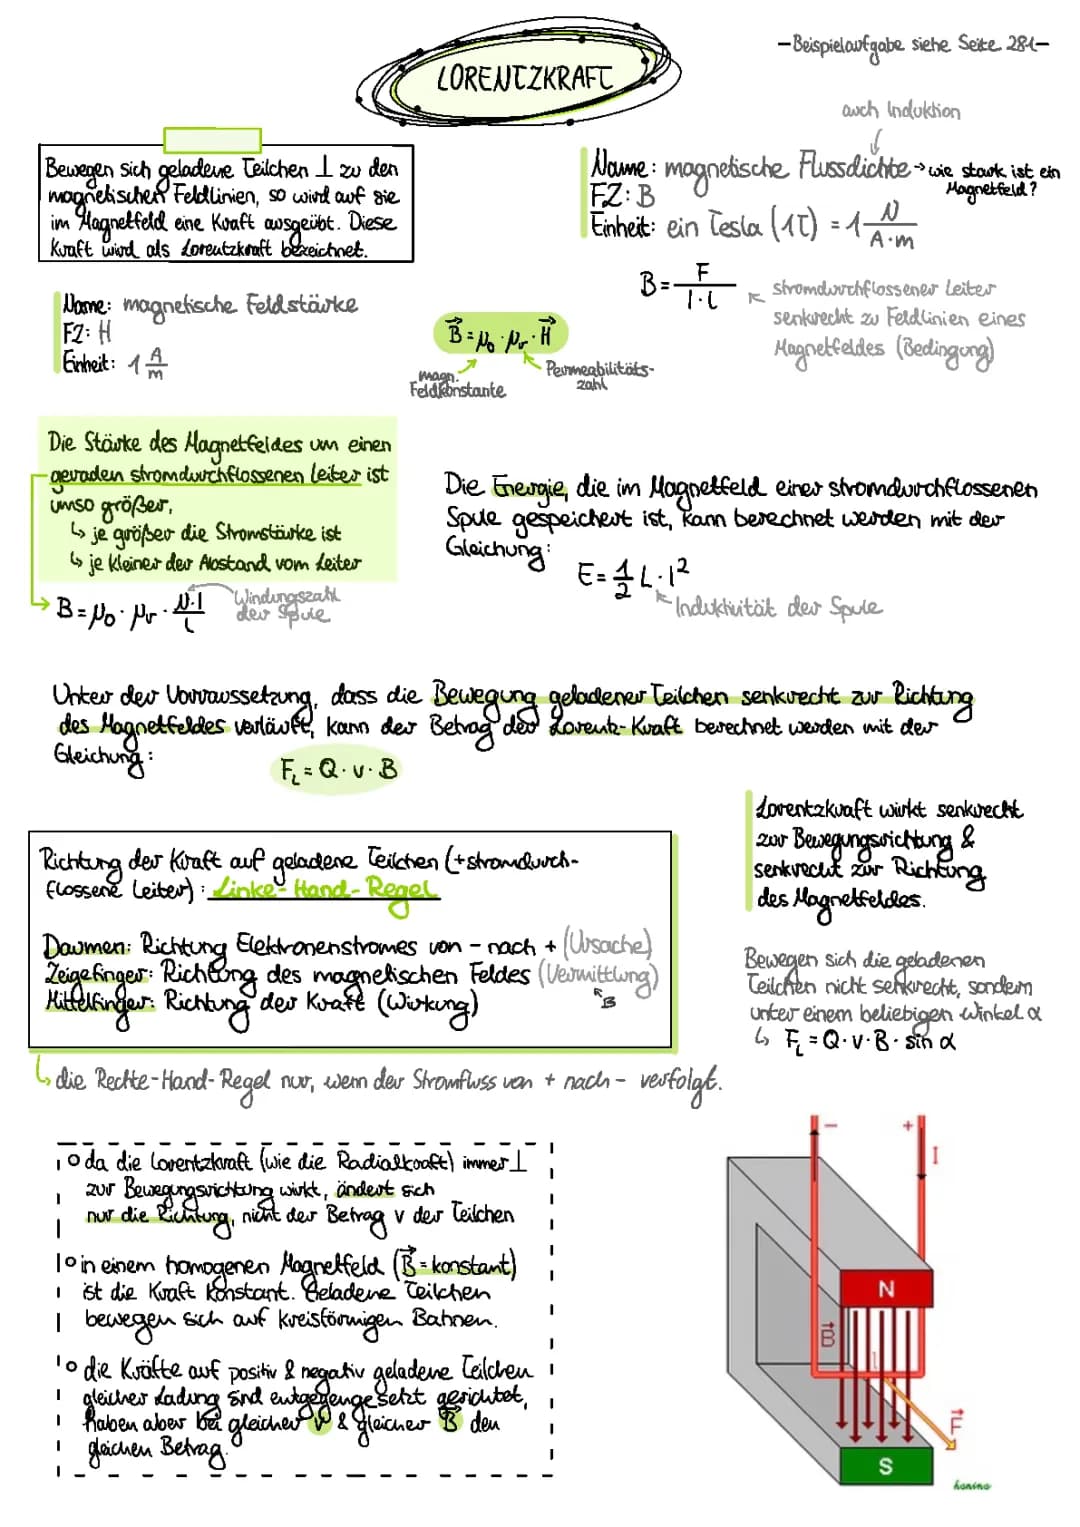 -Beispielaufgabe siehe Seite 281-
LORENTZKRAFT
auch Induktion
Bewegen sich geladene Teilchen ⊥ zu den
magnetischen Feldlinien, so wird auf sie
im Magnetfeld eine Kraft ausgeübt. Diese
Kraft wird als Lorentzkraft bezeichnet.
Name: magnetische Flussdichte → wie stark ist ein
Magnetfeld?
FZ: B
Einheit: ein Tesla (1T) = 1 N/A·m
B = F/I·l
stromdurchflossener Leiter
senkrecht zu Feldlinien eines
Magnetfeldes (Bedingung)
Name: magnetische Feldstärke
FZ: H
Einheit: 1 A/m
B⃗ = μ₀ · μᵣ · H⃗
magn.
Feldkonstante
Permeabilitäts-
zahl
Die Stärke des Magnetfeldes um einen
geraden stromdurchflossenen Leiter ist
umso größer,
↳ je größer die Stromstärke ist
↳ je kleiner der Abstand vom Leiter
B = μ₀ · μᵣ · N·I/l
Windungszahl
der Spule
Die Energie, die im Magnetfeld einer stromdurchflossenen
Spule gespeichert ist, kann berechnet werden mit der
Gleichung:
E = 1/2 L · I²
Induktivität der Spule
Unter der Vorraussetzung, dass die Bewegung geladener Teilchen senkrecht zur Richtung
des Magnetfeldes verläuft, kann der Betrag der Lorentz-Kraft berechnet werden mit der
Gleichung:
F_L = Q · v · B
Lorentzkraft wirkt senkrecht
zur Bewegungsrichtung &
senkrecht zur Richtung
des Magnetfeldes.
Richtung der Kraft auf geladene Teilchen (+stromdurch-
flossene Leiter): Linke-Hand-Regel
Daumen: Richtung Elektronenstromes von - nach + (Ursache)
Zeigefinger: Richtung des magnetischen Feldes (Vermittlung)
B
Mittelfinger: Richtung der Kraft (Wirkung)
Bewegen sich die geladenen
Teilchen nicht senkrecht, sondern
unter einem beliebigen Winkel α
↳ F_L = Q · v · B · sin α
↳ die Rechte-Hand-Regel nur, wenn der Stromfluss von + nach - verfolgt.
○ da die Lorentzkraft (wie die Radialkraft) immer ⊥
zur Bewegungsrichtung wirkt, ändert sich
nur die Richtung, nicht der Betrag v der Teilchen
○ in einem homogenen Magnetfeld (B⃗ = konstant)
ist die Kraft konstant. Geladene Teilchen
bewegen sich auf kreisförmigen Bahnen.
○ die Kräfte auf positiv & negativ geladene Teilchen
gleicher Ladung sind entgegengesetzt gerichtet,
haben aber bei gleicher v⃗ & gleicher B⃗ den
gleichen Betrag.
- +
I
N
B⃗
l
F⃗
S
hanina